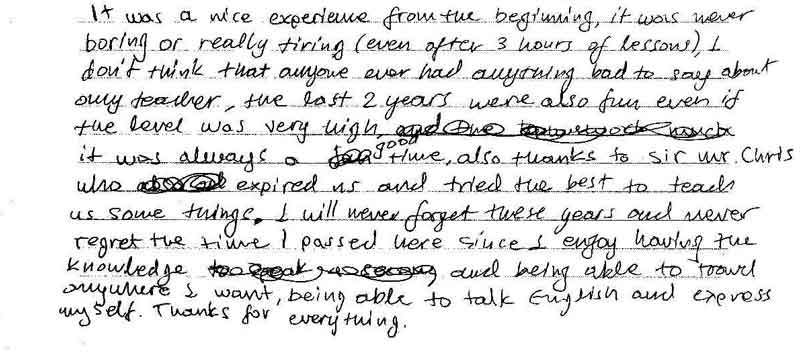 It was a nice experience from the beginning, it was never
boring or really tiring (even after 3 hours of lessons), I
don't think that anyone ever had anything bad to say about
any teacher, the last 2 years were also fun even if
the level was very high,
it was always a good time, also thanks to sir mr. Chris
who expired us and tried the best to teach
us some things. I will never forget these years and never
regret the time I passed here since I enjoy having the
knowledge and being able to travel
anywhere I want, being able to talk English and express
myself. Thanks for everything.